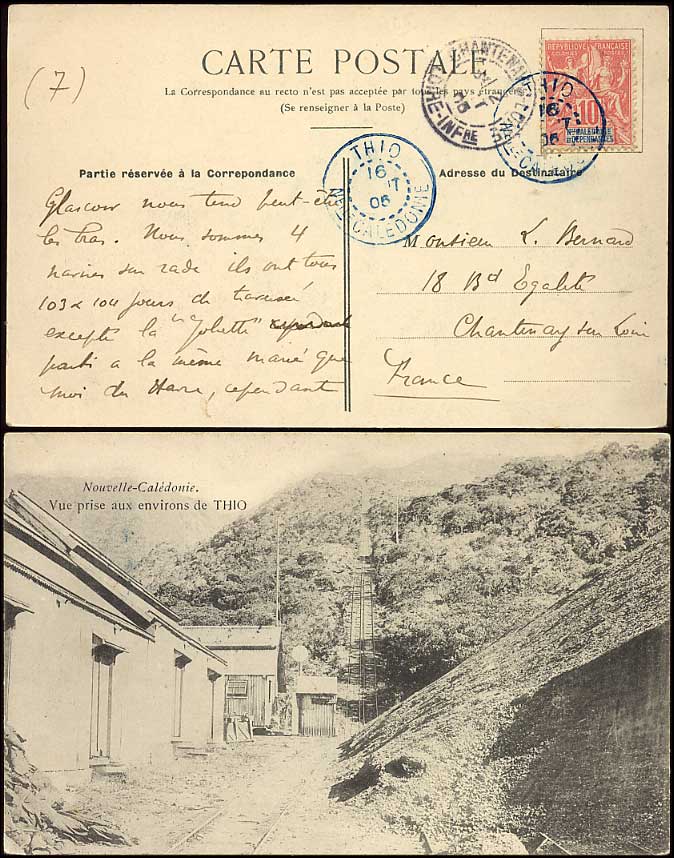 (7)
CARTE POSTALE
La Correspondance au recto n'est pas acceptée par tous les pays étrangers
(Se renseigner à la Poste)
REPVBLIQVE FRANÇAISE
COLONIES POSTES
10
NLLE CALEDONIE
ET DEPENDANCES
THIO
16
06
NLLE CALEDONIE
CHANTENAY
LOIRE-INFRE
THIO
16
06
NLLE CALEDONIE
Partie réservée à la Correpondance
Adresse du Destinataire
Glascow nous tend peut-être
les bras. Nous sommes 4
navires sur rade ils ont tous
103 à 104 jours de traversée
excepté la "Joliette"
parti a la même marée que
moi du Havre, cependant
Monsieur L. Bernard
18 Bd Egalité
Chantenay sur Loire
France
Nouvelle-Calédonie.
Vue prise aux environs de THIO